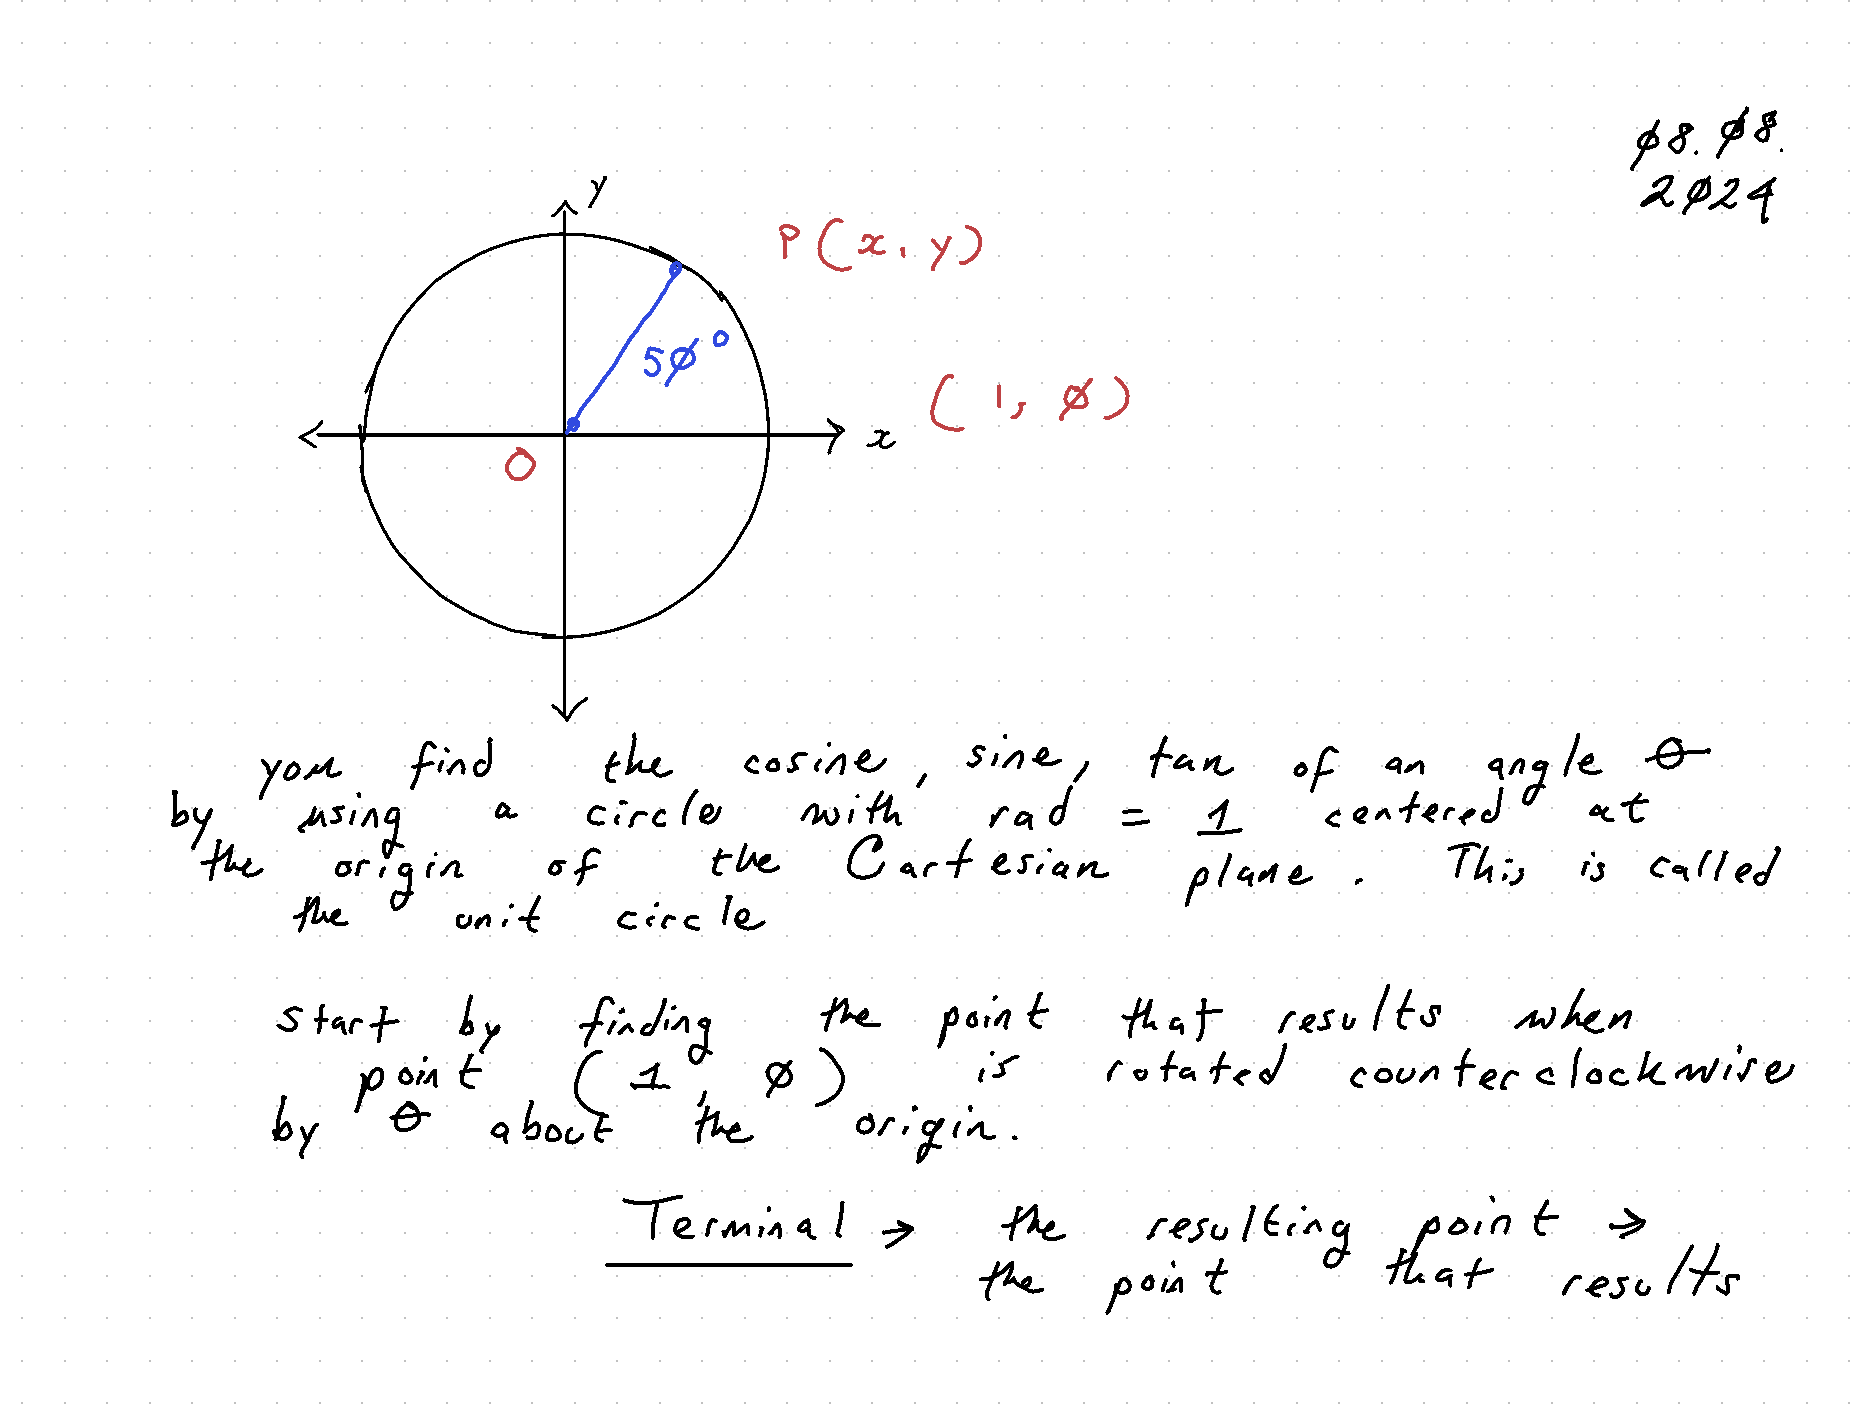 08.08.
2024
y
P(x, y)
50°
(1, 0)
x
O
you find the cosine, sine, tan of an angle θ
by using a circle with rad = 1 centered at
the origin of the Cartesian plane. This is called
the unit circle
start by finding the point that results when
point (1, 0) is rotated counterclockwise
by θ about the origin.
Terminal → the resulting point →
the point that results